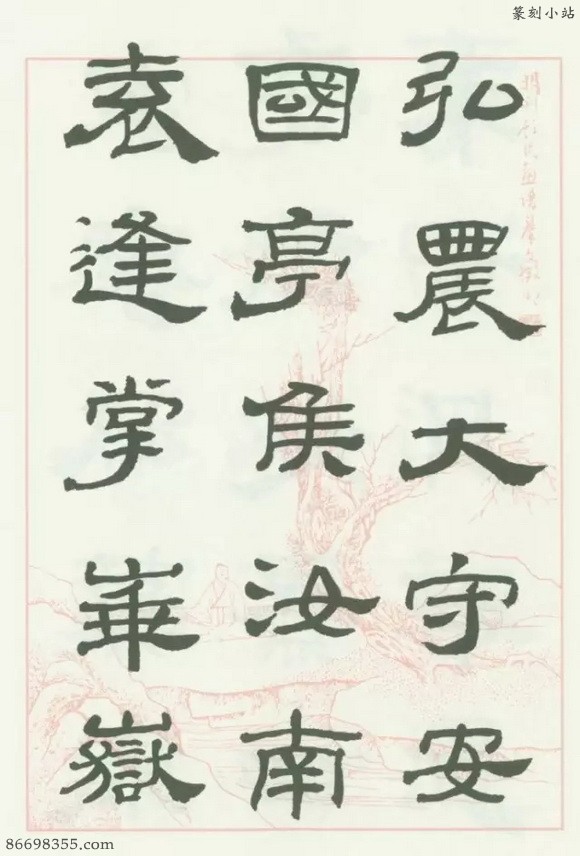 篆刻小站
弘農大守安
國亭侯汝南
袁逢掌崋嶽
86698355.com